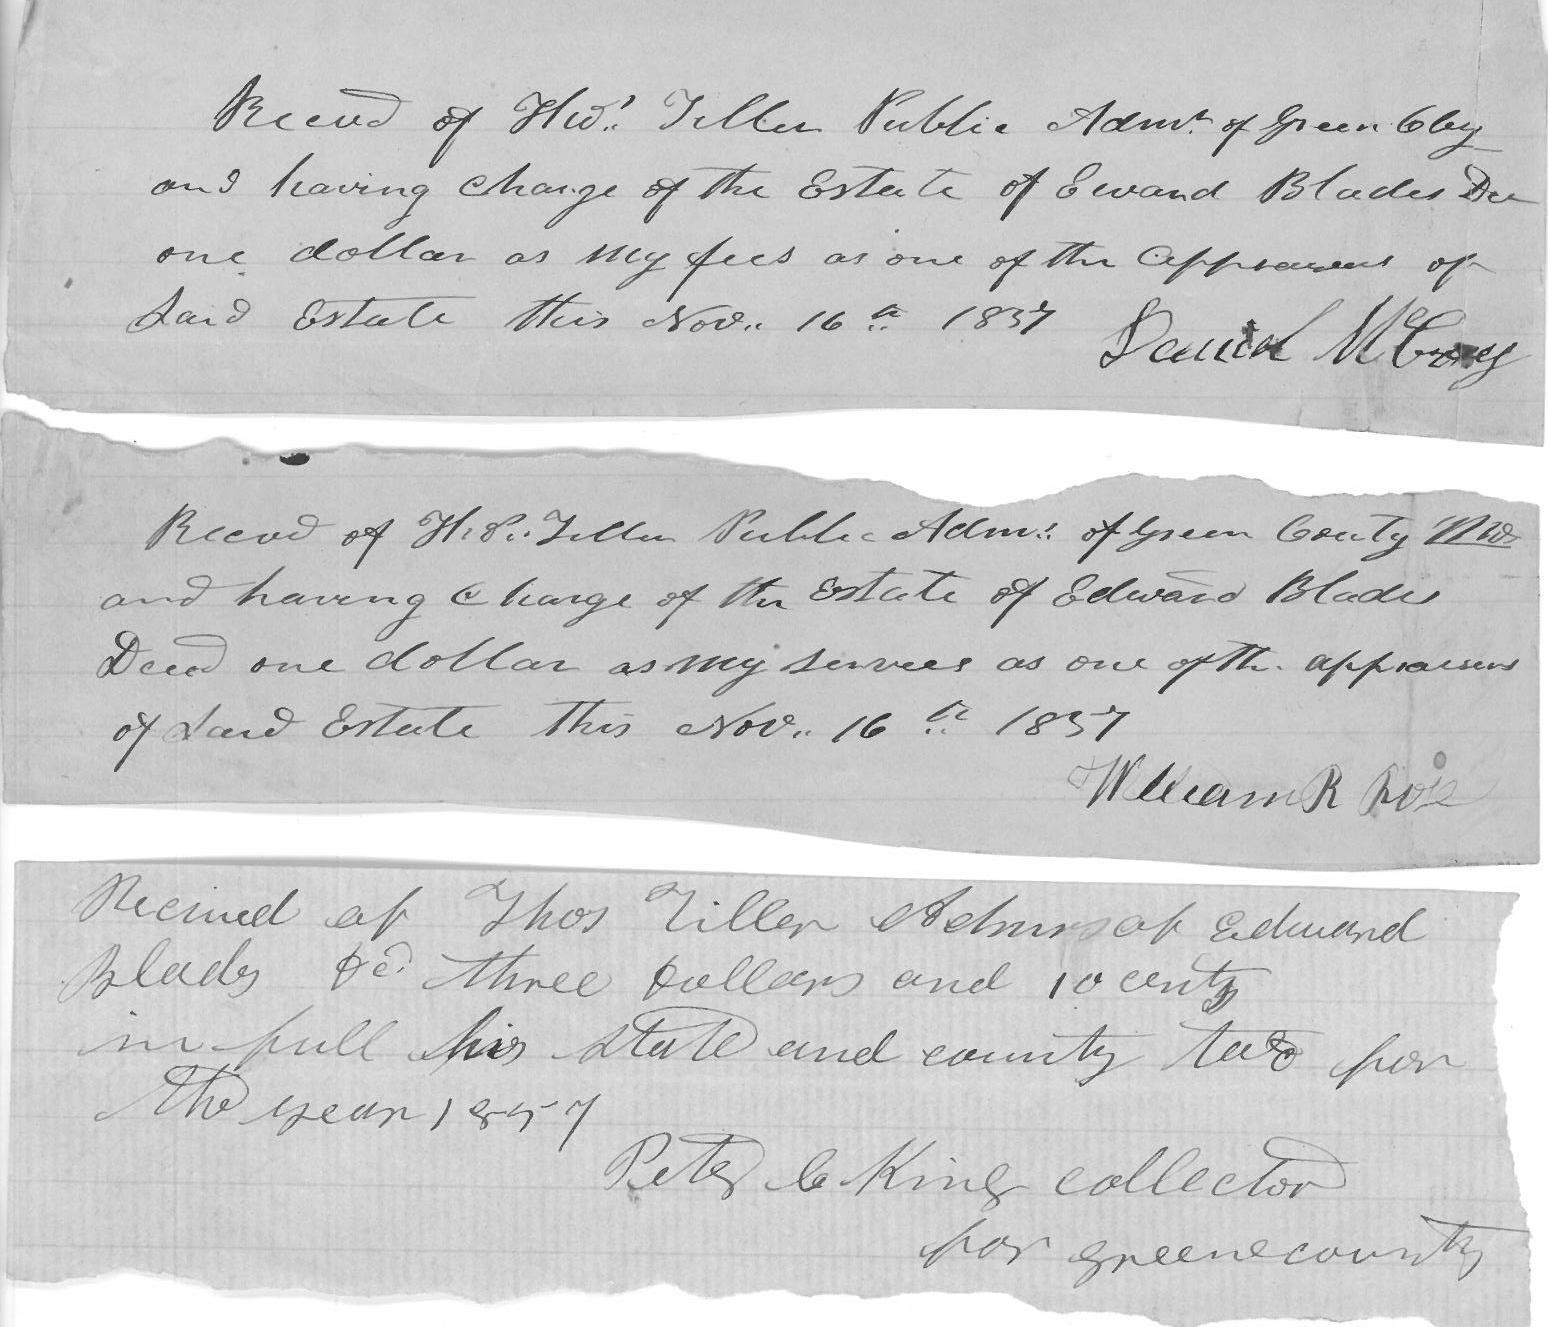 Recevd of Thos. Tiller Public Admr. of Green Cty
and having charge of the Estate of Eward Blades Dec
one dollar as my fees as one of the appraisers of
Said Estate this Nov. 16th 1857
Daniel McCroy
Recevd of Th.s. Tiller Public Admr. of Green Couty Mo
and having charge of the Estate of Edward Blades
Decd one dollar as my servces as one of the appraisers
of Said Estate this Nov. 16th 1857
William R Rose
Recived of Thos Tiller Admr of Edward
Blades Dcd three Dollars and 10 cents
in full his state and county tax for
the year 1857
Peter C King collector
for greene county